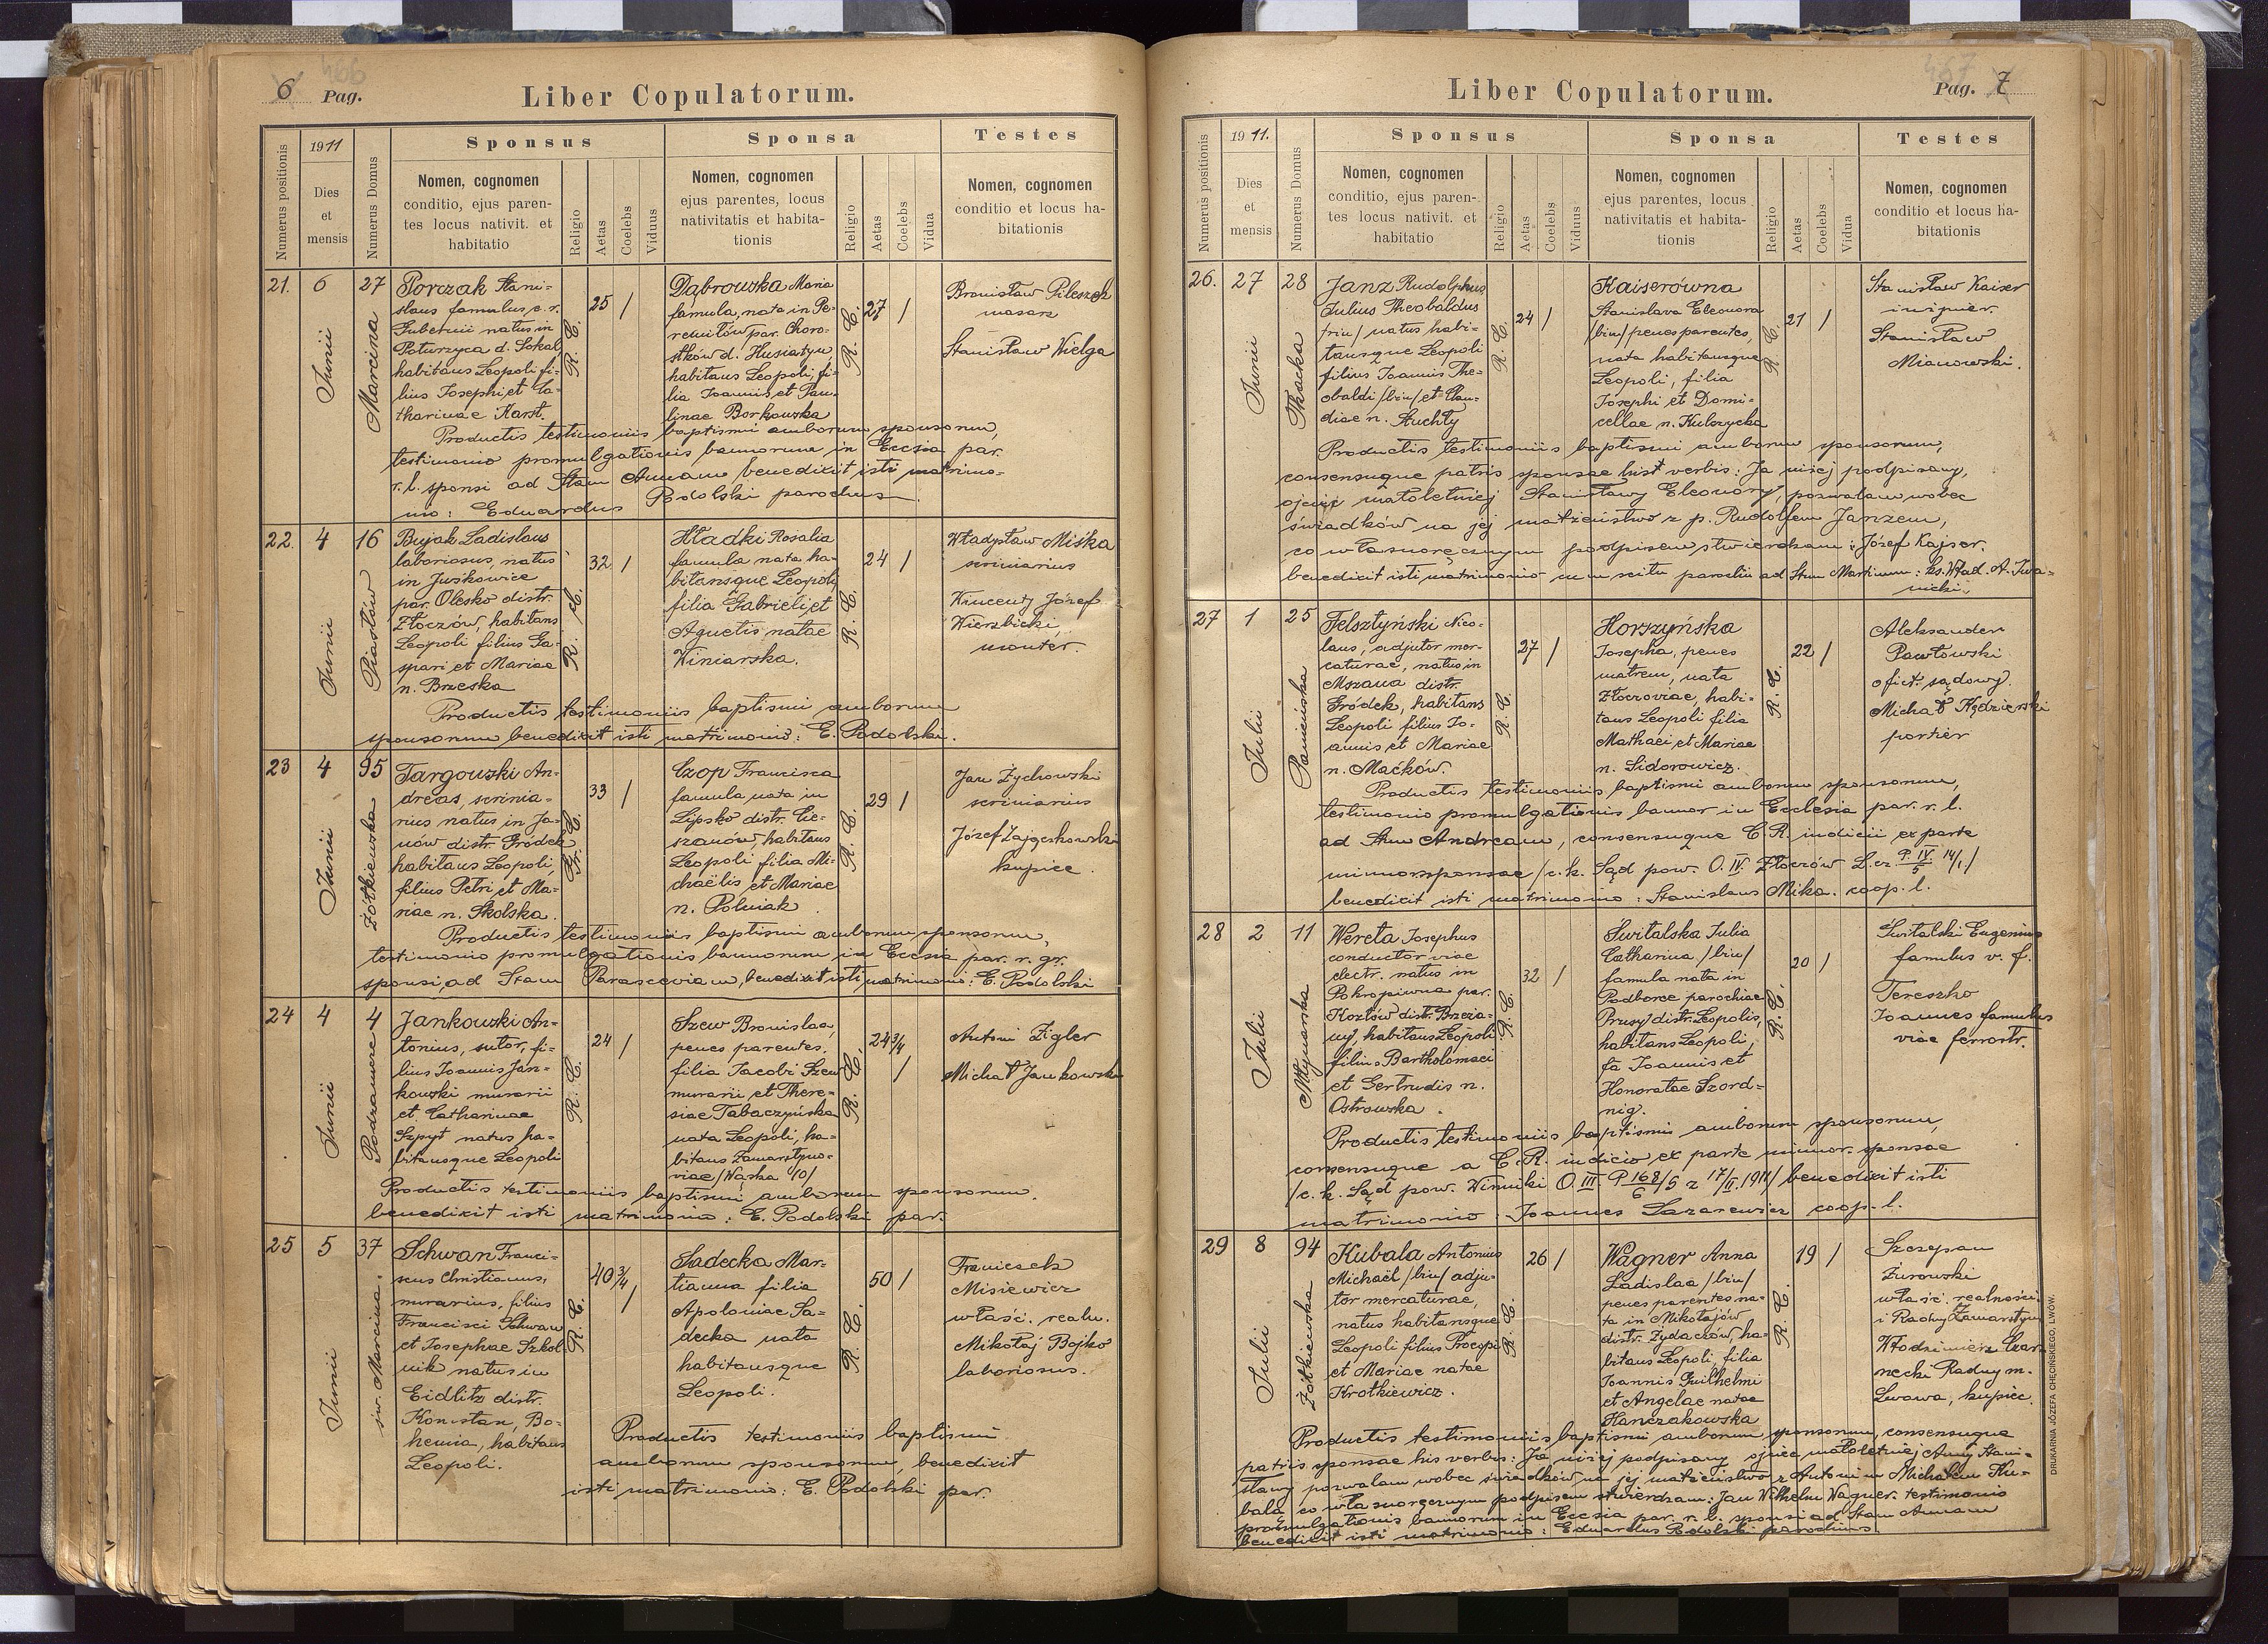 6 Pag.
466
Liber Copulatorum.
Numerus positionis
1911
Dies
et
mensis
Numerus Domus
Sponsus
Nomen, cognomen
conditio, ejus paren-
tes locus nativit. et
habitatio
Religio
Aetas
Coelebs
Viduus
Sponsa
Nomen, cognomen
ejus parentes, locus
nativitatis et habita-
tionis
Religio
Aetas
Coelebs
Vidua
Testes
Nomen, cognomen
conditio et locus ha-
bitationis
21.
6
Junii
27
Marcina
Porczak Stani-
slaus famulus c. r.
Gubernii natus in
Poturzyca d. Sokal
habitans Leopoli fi-
lius Josephi et Ca-
tharinae Karst.
R. C.
25 /
Dąbrowska Maria
famula, nata in Pe-
remiłów par. Choro-
stków d. Husiatyn
habitans Leopoli, fi-
lia Joannis et Pau-
linae Borkowska
R. C.
27 /
Bronisław Pileszek
masarz
Stanisław Wielga
Productis testimoniis baptismi amborum sponsorum,
testimonio promulgationis bannorum in Eccsia par.
r. l. sponsi ad Stam Annam benedixit isti matrimo-
nio: Eduardus Podolski parochus.
22.
4
Junii
16
Piastów
Bujak Ladislaus
laboriosus, natus
in Juśkowice
par. Olesko distr.
Złoczów, habitans
Leopoli filius Ga-
spari et Mariae
n. Brzeska
R. C.
32 /
Hładki Rosalia
famula nata ha-
bitansque Leopoli
filia Gabrieli et
Agnetis natae
Winiarska.
R. C.
24 /
Władysław Miśka
scriniarius
Wincenty Józef
Wierzbicki,
monter.
Productis testimoniis baptismi amborum
sponsorum benedixit isti matrimonio: E. Podolski.
23
4
Junii
95
Żółkiewska
Targowski An-
dreas, scrinia-
rius natus in Ja-
nów distr. Gródek
habitans Leopoli,
filius Petri et Ma-
riae n. Skolska.
Gr. C.
33 /
Czop Francisca
famula nata in
Lipsko distr. Cie-
szanów, habitans
Leopoli filia Mi-
chaëlis et Mariae
n. Polniak.
R. C.
29 /
Jan Żychowski
scriniarius
Józef Zajączkowski
kupiec.
Productis testimoniis baptismi amborum sponsorum,
testimonio promulgationis bannorum in Eccsia par. r. gr.
sponsi, ad Stam Parasceviam, benedixit isti matrimonio: E. Podolski
24
4
Junii
4
Podzamcze
Jankowski An-
tonius, sutor, fi-
lius Joannis Jan-
kowski murarii
et Catharinae
Szpyt natus ha-
bitansque Leopoli
R. C.
24 /
Szew Bronislaa,
penes parentes,
filia Jacobi Szew
murarii et There-
siae Tabaczyńska
nata Leopoli, ha-
bitans Zamarstyno-
viae /Wąska 10/
R. C.
24 3/4 /
Antoni Zigler
Michał Jankowski
Productis testimoniis baptismi amborum sponsorum.
benedixit isti matrimonio: E. Podolski par.
25
5
Junii
37
św. Marcina.
Schwan Franci-
scus Christianus,
murarius, filius
Francisci Schwan
et Josephae Szkol-
nik natus in
Eidlitz distr.
Komotau, Bo-
hemia, habitans
Leopoli.
R. C.
40 3/4 /
Sadecka Mar-
tianna filia
Apoloniae Sa-
decka nata
habitansque
Leopoli.
R. C.
50 /
Franciszek
Misiewicz
właśc. realn.
Mikołaj Bojko
laboriosus.
Productis testimoniis baptismi
amborum sponsorum, benedixit
isti matrimonio: E. Podolski par.
467
Liber Copulatorum.
Pag. 7
Numerus positionis
1911.
Dies
et
mensis
Numerus Domus
Sponsus
Nomen, cognomen
conditio, ejus paren-
tes locus nativit. et
habitatio
Religio
Aetas
Coelebs
Viduus
Sponsa
Nomen, cognomen
ejus parentes, locus
nativitatis et habita-
tionis
Religio
Aetas
Coelebs
Vidua
Testes
Nomen, cognomen
conditio et locus ha-
bitationis
26.
27
Junii
28
Tkacka
Janz Rudolphus
Julius Theobaldus
/trin/ natus habi-
tansque Leopoli
filius Joannis The-
obaldi /bin/ et Clau-
diae n. Stuchly
R. C.
24 /
Kaiserówna
Stanislava Eleonora
/bin/ penes parentes,
nata habitansque
Leopoli, filia
Josephi et Domi-
cellae n. Kulszycka
R. C.
21 /
Stanisław Kaiser
inżynier.
Stanisław
Mianowski.
Productis testimoniis baptismi amborum sponsorum,
consensuque patris sponsae hist verbis: Ja niżej podpisany,
ojciec małoletniej Stanisławy Eleonory, pozwalam wobec
świadków na jej małżeństwo z p. Rudolfem Janzem,
co własnoręcznym podpisem stwierdzam: Józef Kajser.
benedixit isti matrimonio cum scitu parochi ad Stum Martinum: ks. Wład. A. Iwa-
nicki.
27
1
Julii
25
Panieńska
Felsztyński Nico-
laus, adjutor mer-
caturae, natus in
Mszana distr.
Gródek, habitans
Leopoli filius Jo-
annis et Mariae
n. Maćków.
R. C.
27 /
Horszyńska
Josepha, penes
matrem, nata
Złoczoviae, habi-
tans Leopoli filia
Mathaei et Mariae
n. Sidorowicz.
R. C.
22 /
Aleksander
Pawłowski
ofict. sądowy.
Michał Kędzierski
portier
Productis testimoniis baptismi amborum sponsorum,
testimonio promulgationis bannor in Ecclesia par. r. l.
ad Stum Andream, consensuque C. R. iudicii ex parte
minnor. sponsae /c. k. Sąd pow. O. IV. Złoczów L. cz. P. IV. 14/1 /
5
benedixit isti matrimonio: Stanislaus Mika. coop. l.
28
2
Julii
11
Młynarska
Wereta Josephus
conductor viae
electr. natus in
Pokropiwna par.
Kozłów distr. Brzeża-
ny, habitans Leopoli
filius Bartholomaei
et Gertrudis n.
Ostrowska.
R. C.
32 /
Świtalska Julia
Catharina /bin/
famula nata in
Podborce parochiae
Prusy distr. Leopolis,
habitans Leopoli,
fa Joannis et
Honoratae Szord-
nig.
R. C.
20 /
Świtalski Eugenius
famulus v. f.
Tereszko
Joannes famulus
viae ferrostr.
Productis testimoniis baptismi amborum sponsorum,
consensuque a C. R. iudicio ex parte minnor. sponsae
/c. k. Sąd pow. Winniki O. III P 168/6 /5 z 17/II. 1911/ benedixit isti
matrimonio: Joannes Lazarewicz coop. l.
29
8
Julii
94
Żółkiewska
Kubala Antonius
Michaël /bin/ adju-
tor mercaturae,
natus habitansque
Leopoli filius Procopi
et Mariae natae
Krotkiewicz.
R. C.
26 /
Wagner Anna
Ladislaa /bin/
penes parentes na-
ta in Mikołajów
distr. Żydaczów, ha-
bitans Leopoli, filia
Joannis Guilhelmi
et Angelae natae
Hanczakowska
R. C.
19 /
Szczepan
Żurowski
właśc. realności
i Radny Zamarstyn.
Włodzimierz Czar-
necki Radny m.
Lwowa, kupiec.
Productis testimoniis baptismi amborum sponsorum, consensuque
patris sponsae his verbis: Ja niżej podpisany ojciec małoletniej Anny Stani-
sławy pozwalam wobec świadków na jej małżeństwo z Antonim Michałem Ku-
balą co własnoręcznym podpisem stwierdzam: Jan Wilhelm Wagner. testimonio
promulgationis bannorum in Eccsia par. r. l. sponsi ad Stam Annam
benedixit isti matrimonio: Eduardus Podolski parochus
DRUKARNIA JÓZEFA CHĘCIŃSKIEGO, LWÓW.